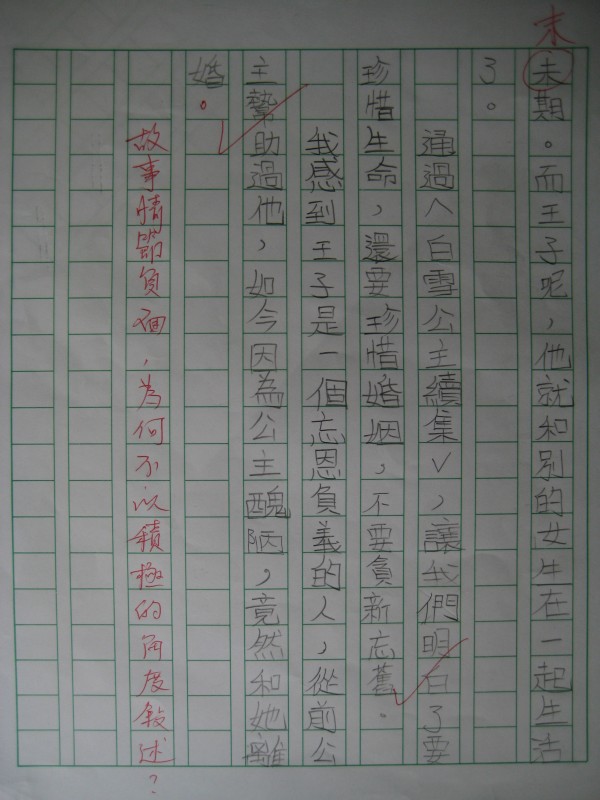 末
未期。而王子呢，他就和別的女生在一起生活
了。
通過〈白雪公主續集〉，讓我們明白了要
珍惜生命，還要珍惜婚姻，不要貪新忘舊。
我感到王子是一個忘恩負義的人，從前公
主幫助過他，如今因為公主醜陋，竟然和她離
婚。
故事情節負面，為何不以積極的角度敍述？